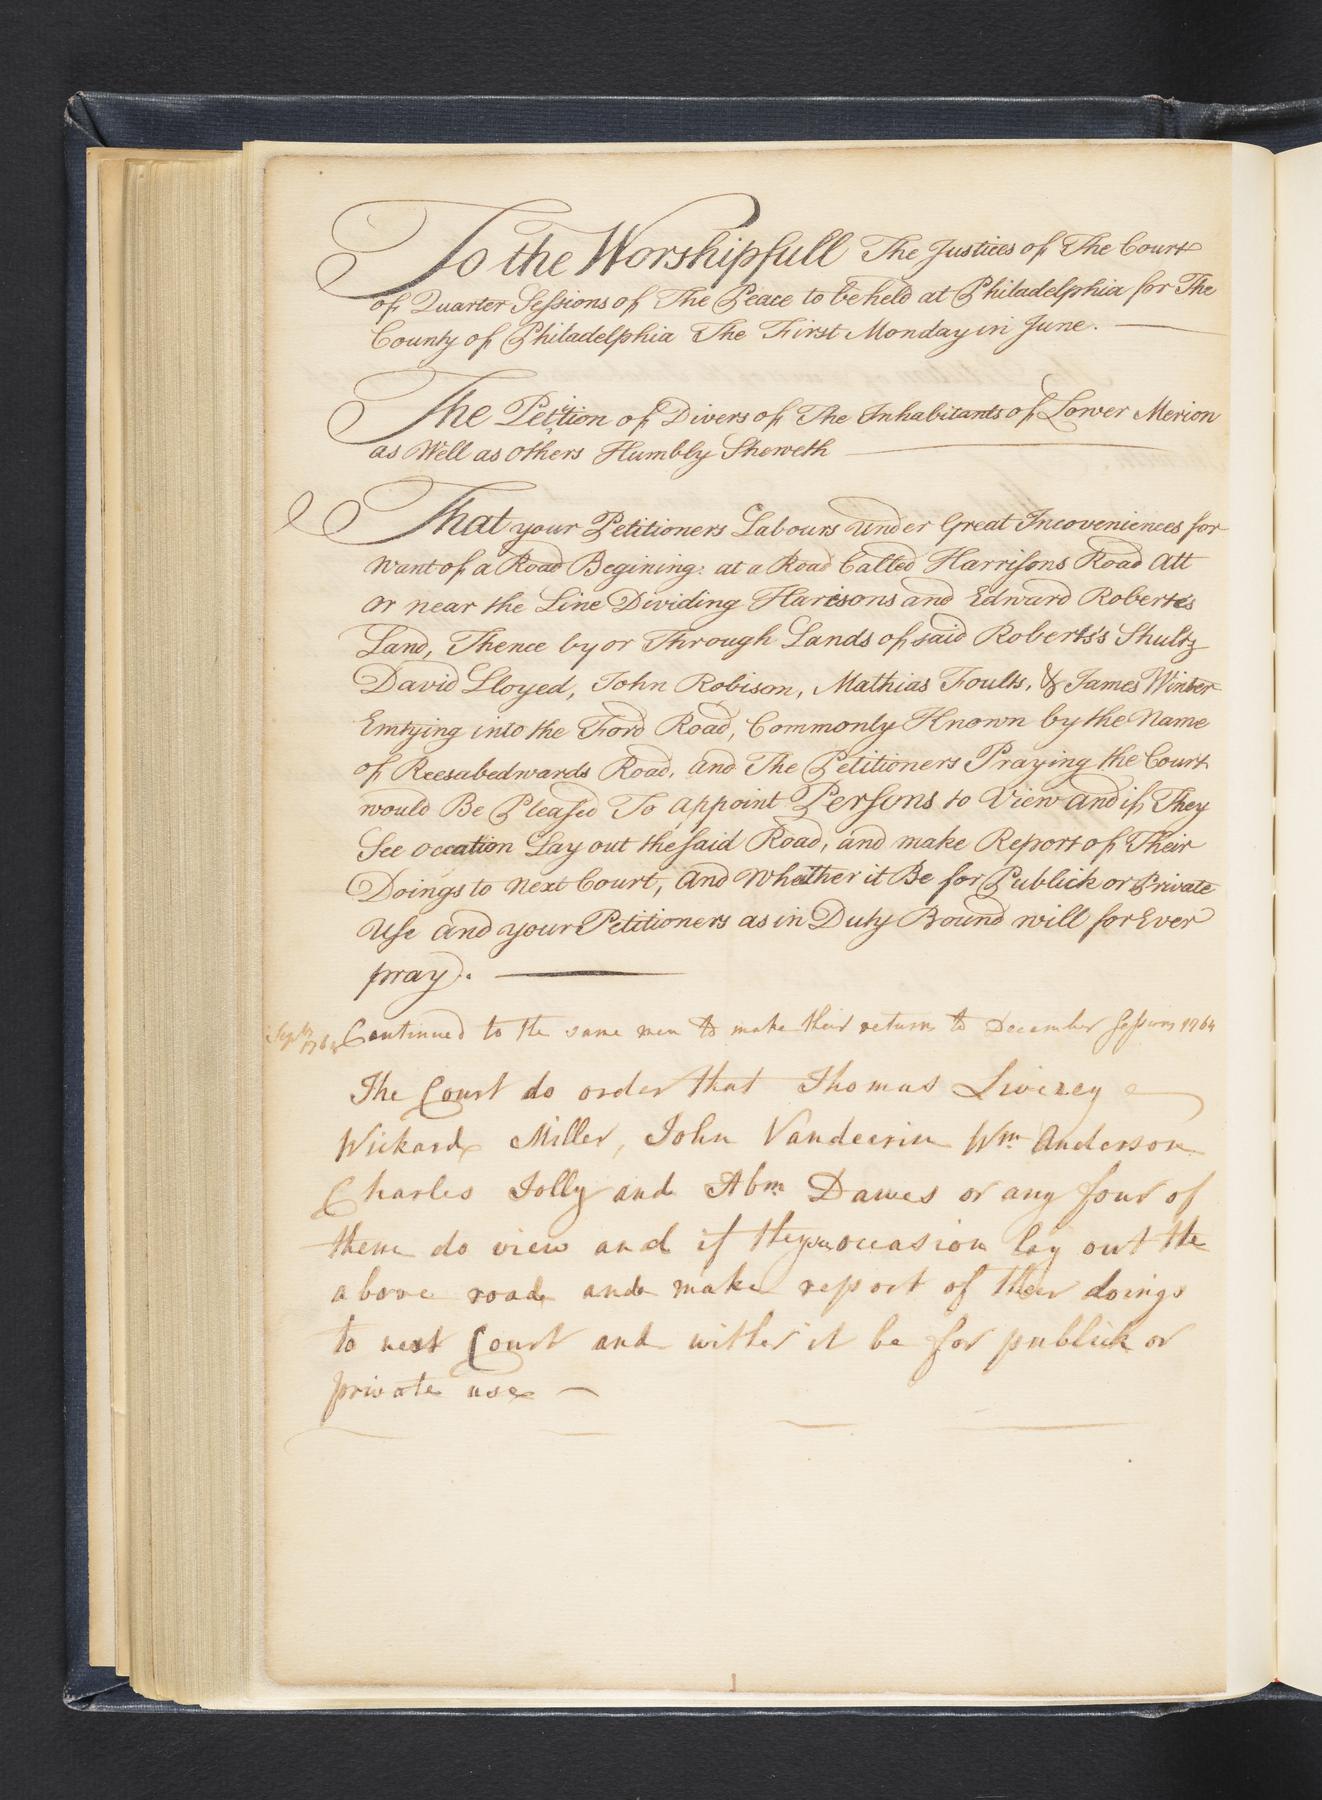 To the Worshipfull The Justices of The Court
of Quarter Sessions of The Peace to be held at Philadelphia for The
County of Philadelphia The First Monday in June.
The Petition of Divers of The Inhabitants of Lower Merion
as Well as others Humbly Sheweth
That your Petitioners Labours under Great Incoveniences for
want of a Road Begining: at a Road Called Harrisons Road Att
or near the Line Dividing Harisons and Edward Roberts's
Land, Thence by or Through Lands of said Roberts's Shultz
David Lloyed, John Robison, Mathias Foults, & James Winter
Emtying into the Ford Road, Commonly Known by the Name
of Reesabedwards Road, and The Petitioners Praying the Court
would Be Pleased To appoint Persons to View and if They
See occation Lay out the said Road, and make Report of Their
Doings to next Court, and Whether it Be for Publick or Private
Use and your Petitioners as in Duty Bound will for Ever
pray.
Septr 1764 Continued to the same men to make their return to December Sessions 1764
The Court do order that Thomas Livezey
Wickard Miller, John Vandeerin Wm Anderson
Charles Jolly and Abm Dawes or any four of
them do view and if they see occasion lay out the
above road and make report of their doings
to next Court and wither it be for publick or
private use